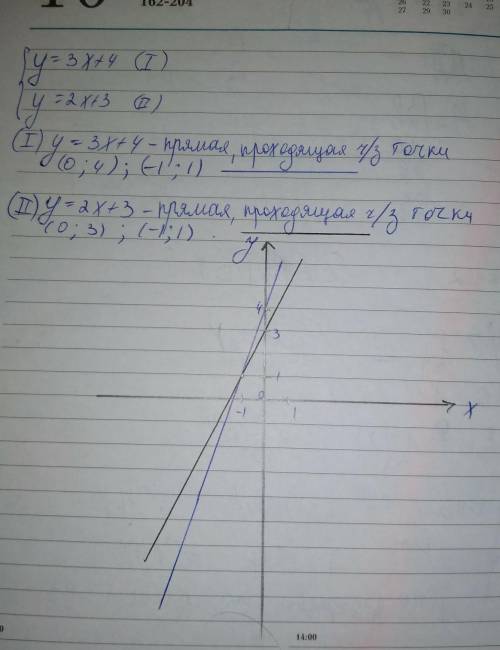 162-204
26 22 23 24 25
27 29 30
{ y = 3x+4 (I)
y = 2x+3 (II)
(I) y = 3x+4 - прямая, проходящая ч/з точки
(0; 4); (-1; 1)
(II) y = 2x+3 - прямая, проходящая ч/з точки
(0; 3); (-1; 1).
y
4
3
1
0
-1 1 x
14:00